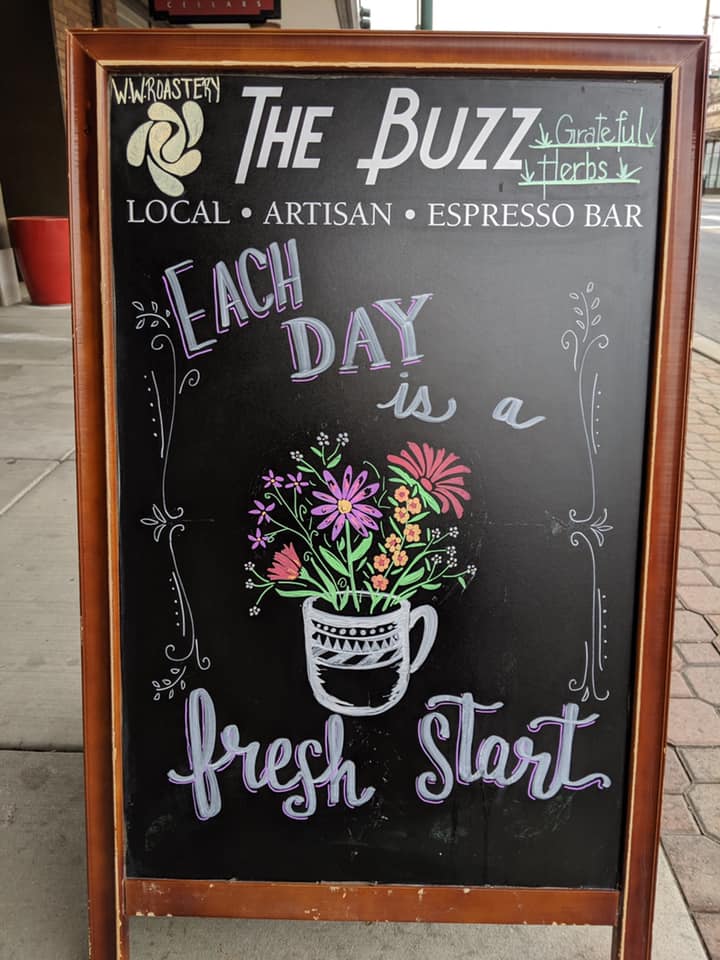 CELLARS
W.W.ROASTERY
THE BUZZ
Grateful
Herbs
LOCAL • ARTISAN • ESPRESSO BAR
EACH
DAY
is a
fresh start